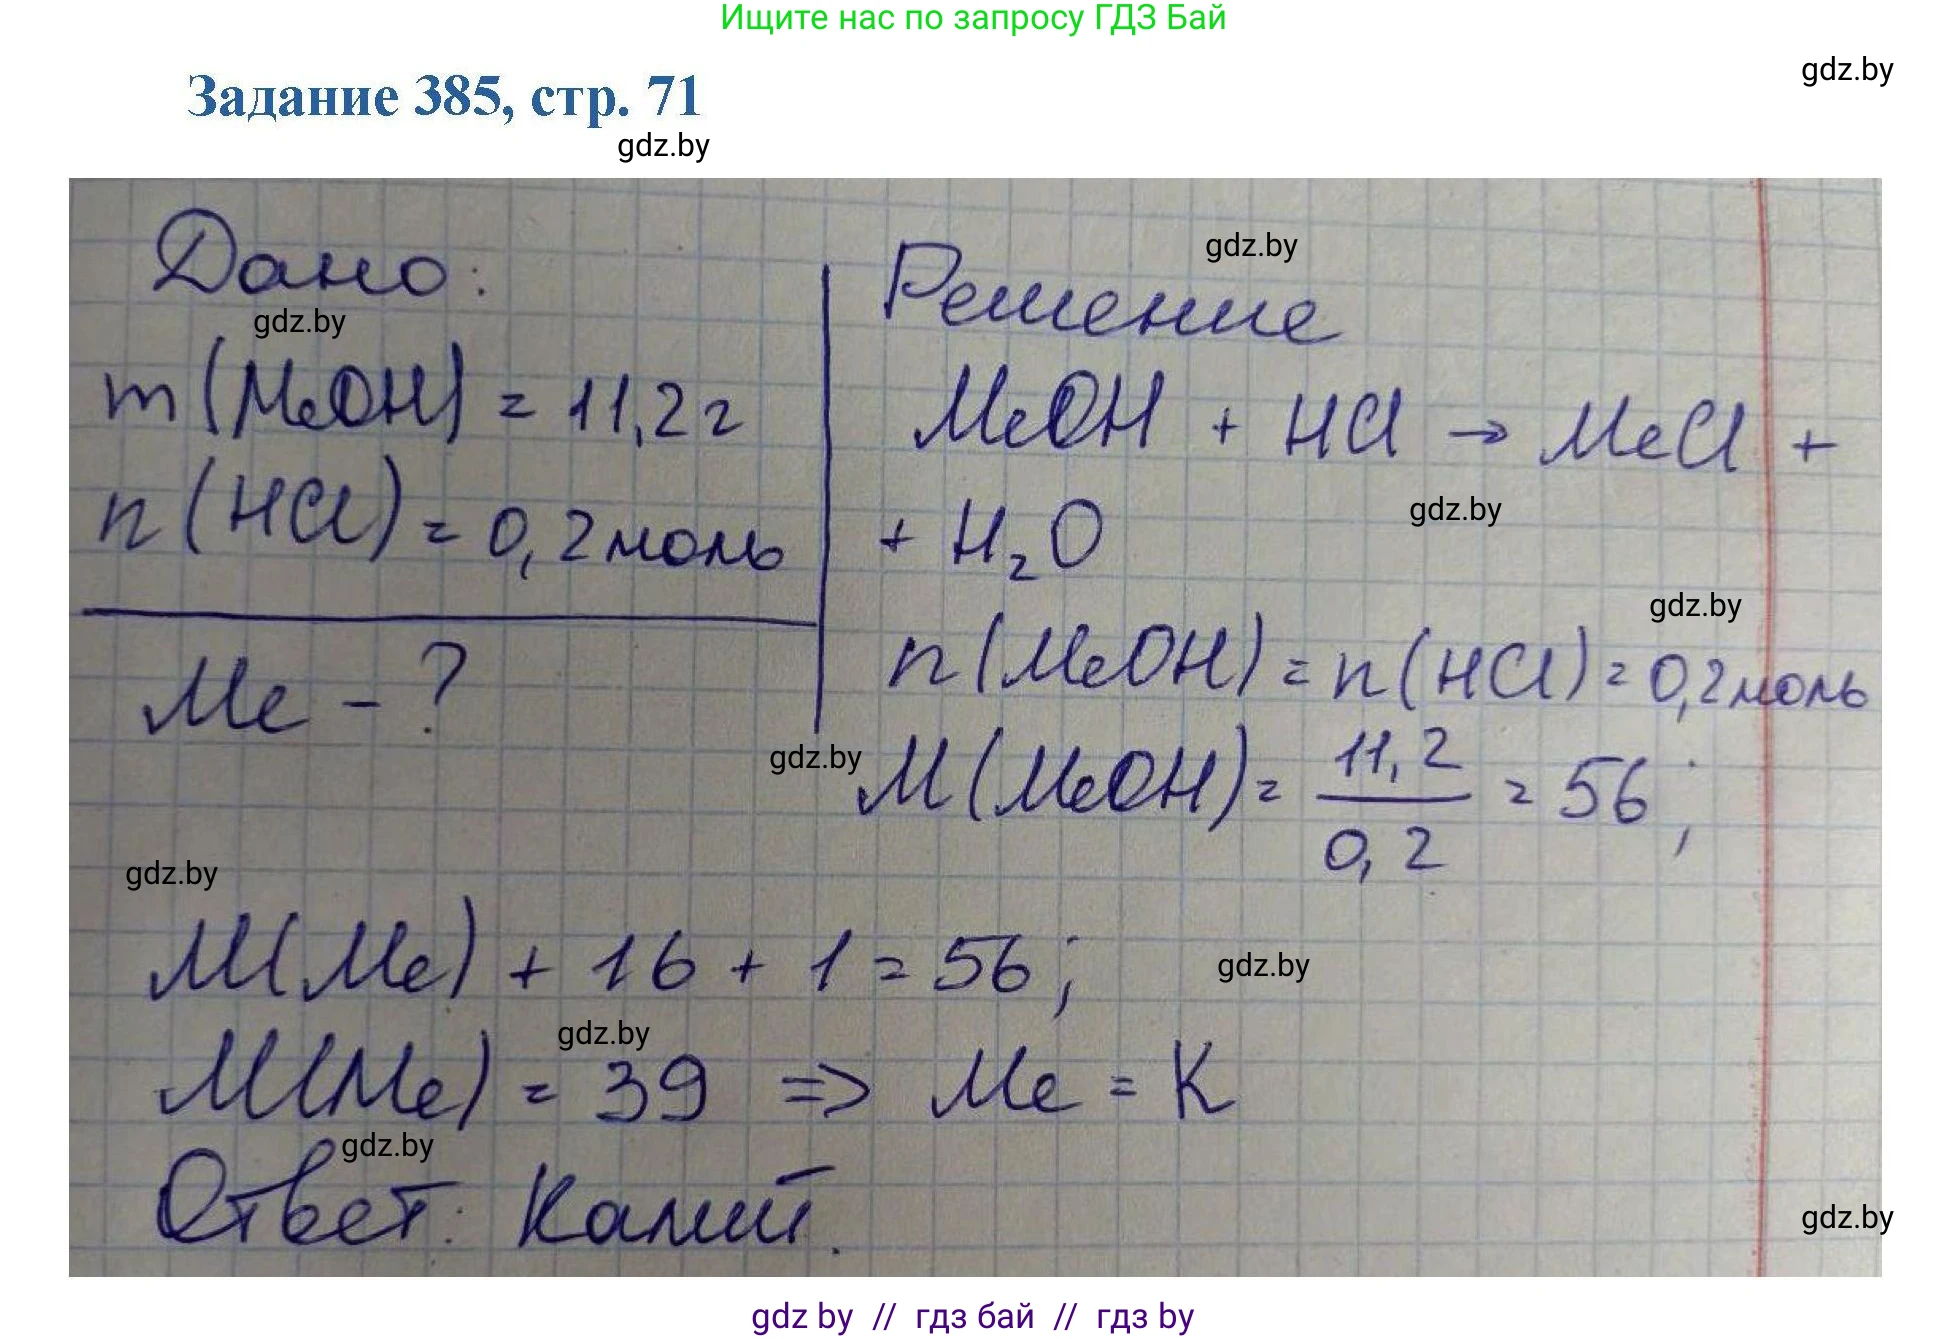 Ищите нас по запросу ГДЗ Бай
gdz.by
Задание 385, стр. 71
gdz.by
Дано:
gdz.by
m(MeOH) = 11,2 г
n(HCl) = 0,2 моль
Me - ?
Решение
gdz.by
MeOH + HCl → MeCl +
+ H₂O
gdz.by
gdz.by
n(MeOH) = n(HCl) = 0,2 моль
gdz.by
M(MeOH) = 11,2 / 0,2 = 56;
gdz.by
M(Me) + 16 + 1 = 56;
gdz.by
gdz.by
M(Me) = 39 => Me = K
gdz.by
Ответ: Калий.
gdz.by
gdz by // гдз бай // гдз by